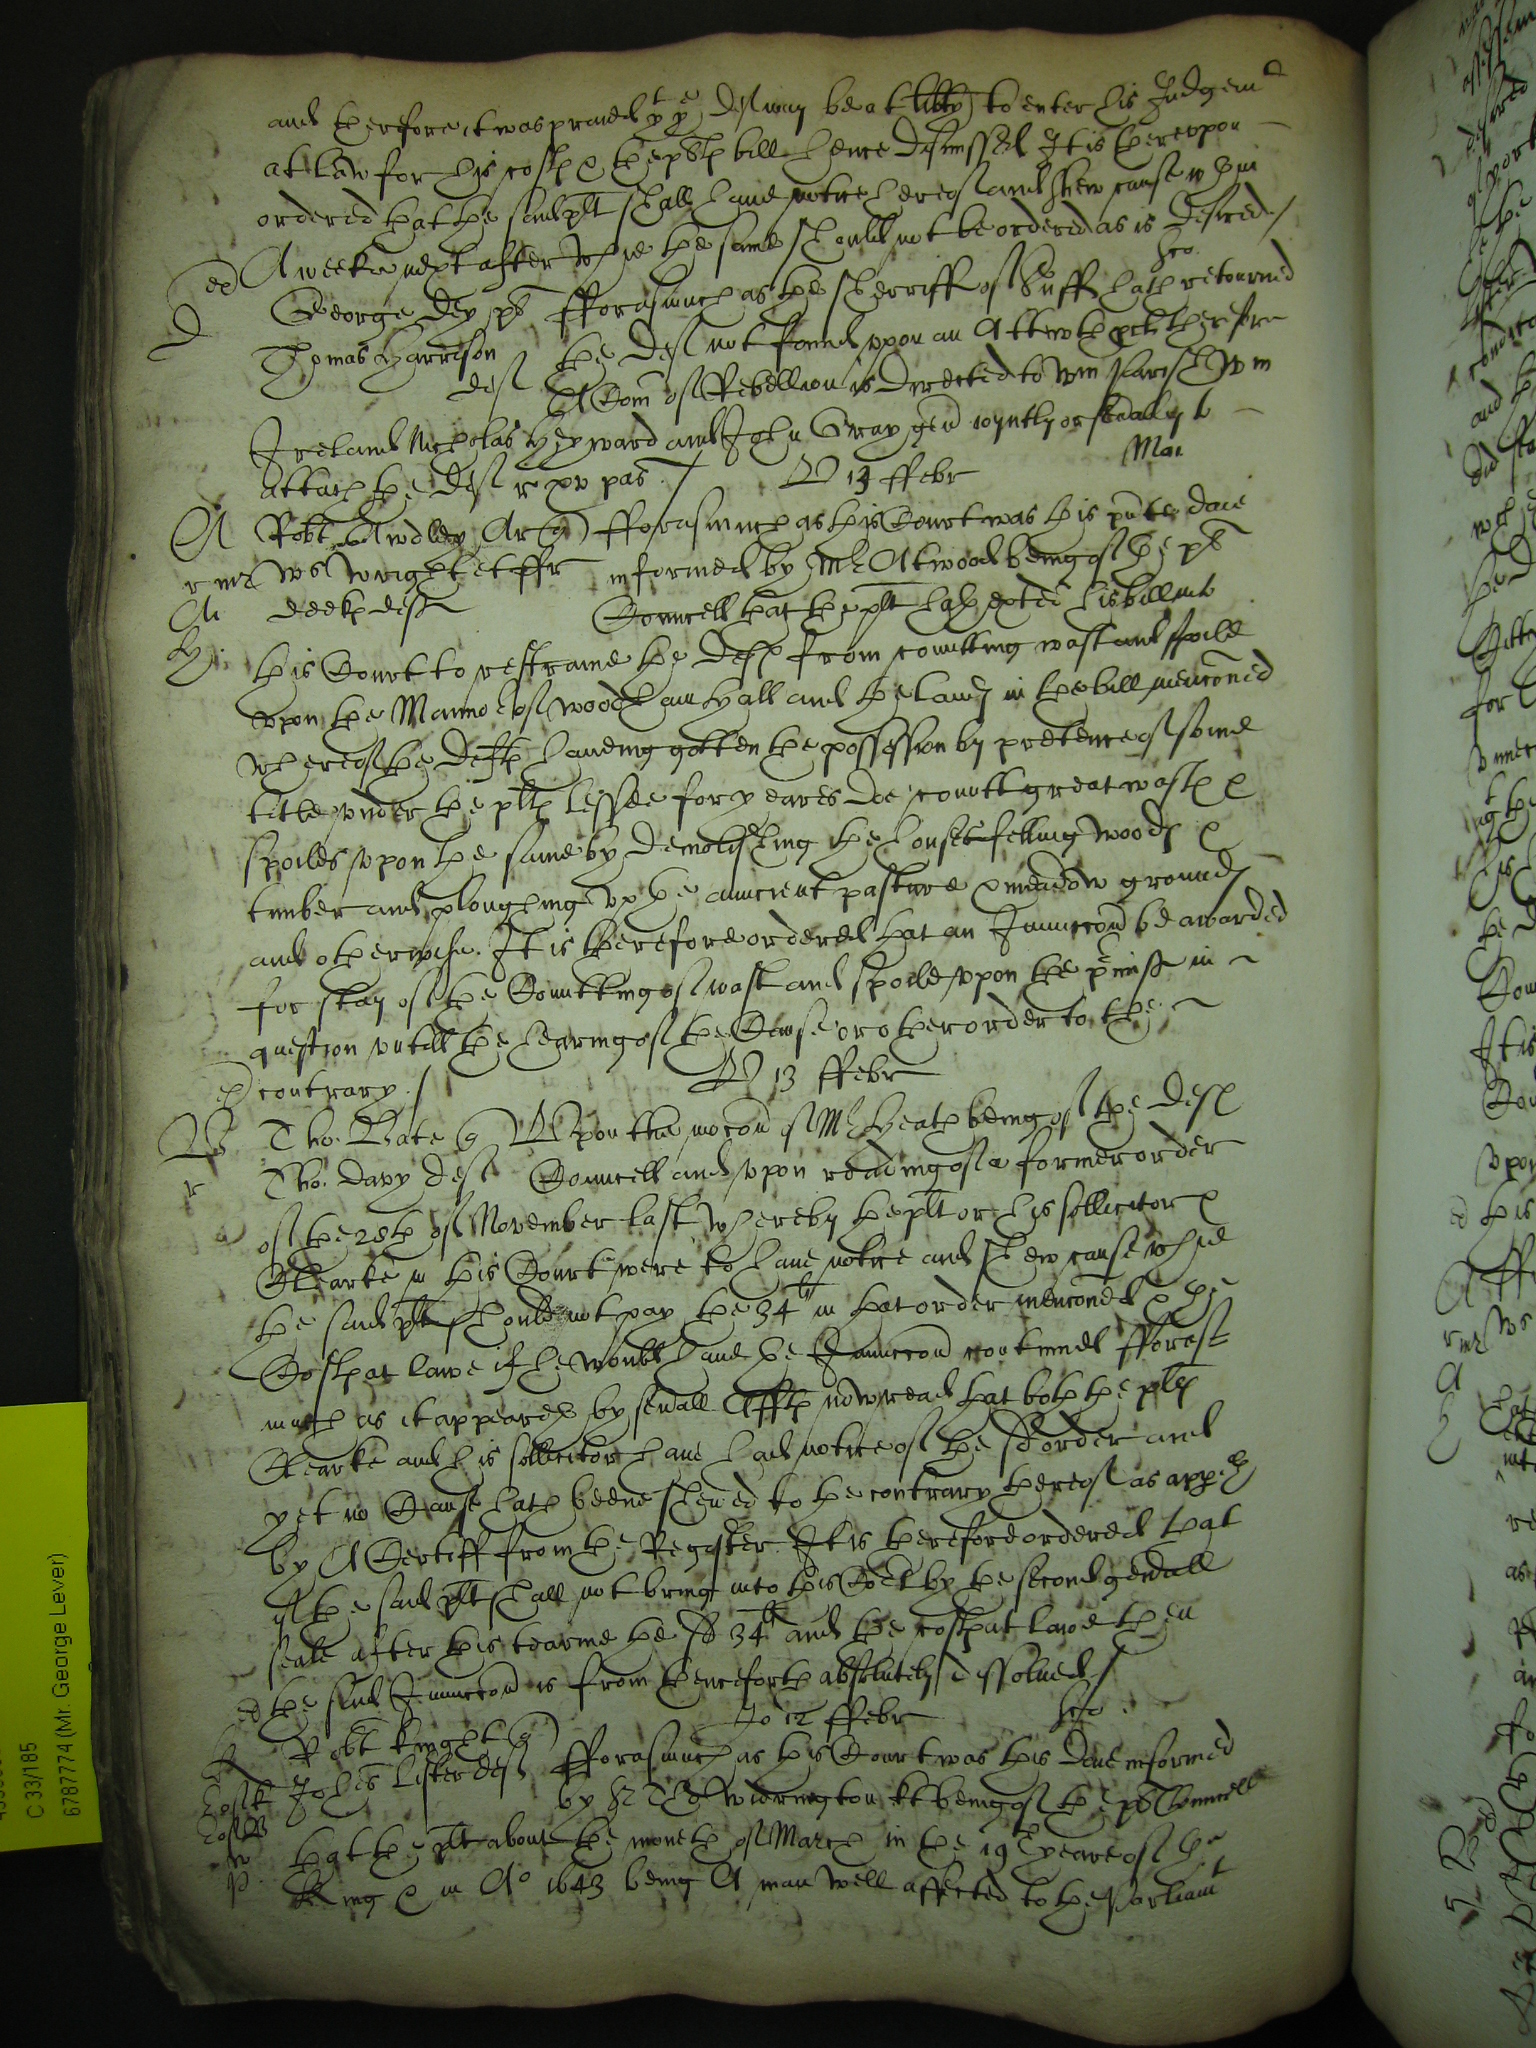 and therefore it was praied yt ye deft may be at libty to enter his Judgemt
at Law for his costs & the plts bill hence dismissed It is thereupon
ordered that the said plt shall have notice hereof and shew cause wthin
A weeke next after why the same should not be ordered as is desired /
George Dey plt fforasmuch as the sherriff of Suff hath retourned
Thomas Harrison deft the deft not found upon an Attachmt therefore
A Com of Rebellion is directed to Wm Parish Wm
Ireland Nicholas Heyward and John Gray gen joyntly or seually to
Attach the deft r xv pas / V 14 ffebr Mar
A Robt Awdley Ar q fforasmuch as this Court was this pnte daie
Ws Wright et informed by Mr Atwood being of the plts
defts Councell that the plt hath exhited his bill into
this Court to restraine the defts from comitting wast and spoile
upon the Mannor of Woodham Hall and the lands in the bill menconed
whereof the defts haveing gotten the possession by pretence of some
title under the plts lessee for yeares doe comitt great wasts &
spoiles upon the same by demolishing the houses felling woods &
timber and ploughing up the auncient pasture & meadow grounds
and otherwise. It is therefore ordered that an Injunccon be awarded
for stay of the Comitting of wast and spoile upon the pmiss in
question untill the hearing of the Cause or other order to the
contrary / V 13 ffebr
Tho. Bate q Upon the mocon of Mr Heath being of the defts
Tho. Davy deft Councell and upon reading of a former order
of the 28th of November last whereby the plt or his sollicitor &
Clearke in this Court were to have notice and shew cause why
the said plt should not pay the 34li in that order menconed & the
Costs at lawe if he would have the Injunccon continued fforas
much as it appeareth by seuall Affts now read that both the plts
Clearke and his sollicitor have had notice of the sd order and
yet no Cause hath beene shewed to the contrary thereof as appeth
by A Certiff from the Register. It is therefore ordered that
if the said plt shall not bring into this Cort by the second genall
seale after this tearme the sd 34li and the costs at lawe then
the said Injunccon is from thenceforth absolutely dissolved /
Jo 12 ffebr
Robt Knight q fforasmuch as this Court was this daie informed
Johes Lister deft by Sr Tho Widrington kt being of the plts Councell
that the plt about the moneth of March in the 19th yeare of the
King & in Ao 1643 being A man well affected to the Parliamt
C 33/185
6787774 (Mr. George Lever)